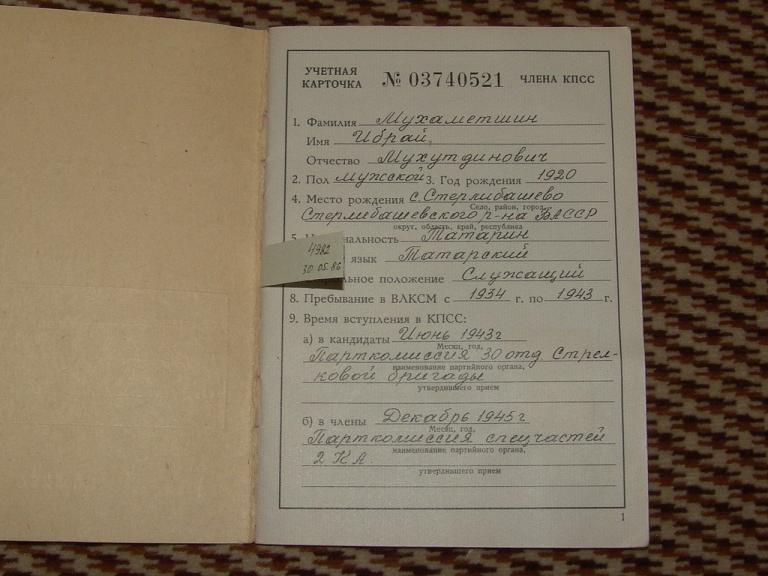 УЧЕТНАЯ КАРТОЧКА № 03740521 ЧЛЕНА КПСС
1. Фамилия Мухаметшин
Имя Ибрай,
Отчество Мухутдинович
2. Пол мужской 3. Год рождения 1920
4. Место рождения с. Стерлибашево
Село, район, город,
Стерлибашевского р-на БАССР
округ, область, край, республика
5. Татарин
4982
язык Татарский
30.05.86
положение Служащий
8. Пребывание в ВЛКСМ с 1934 г. по 1943 г.
9. Время вступления в КПСС:
а) в кандидаты Июнь 1943 г
Месяц, год,
Парткомиссия 30 отд Стрел-
наименование партийного органа,
ковой бригады
утвердившего прием
б) в члены Декабрь 1945 г
Месяц, год,
Парткомиссия спецчастей
наименование партийного органа,
2 КА
утвердившего прием
1